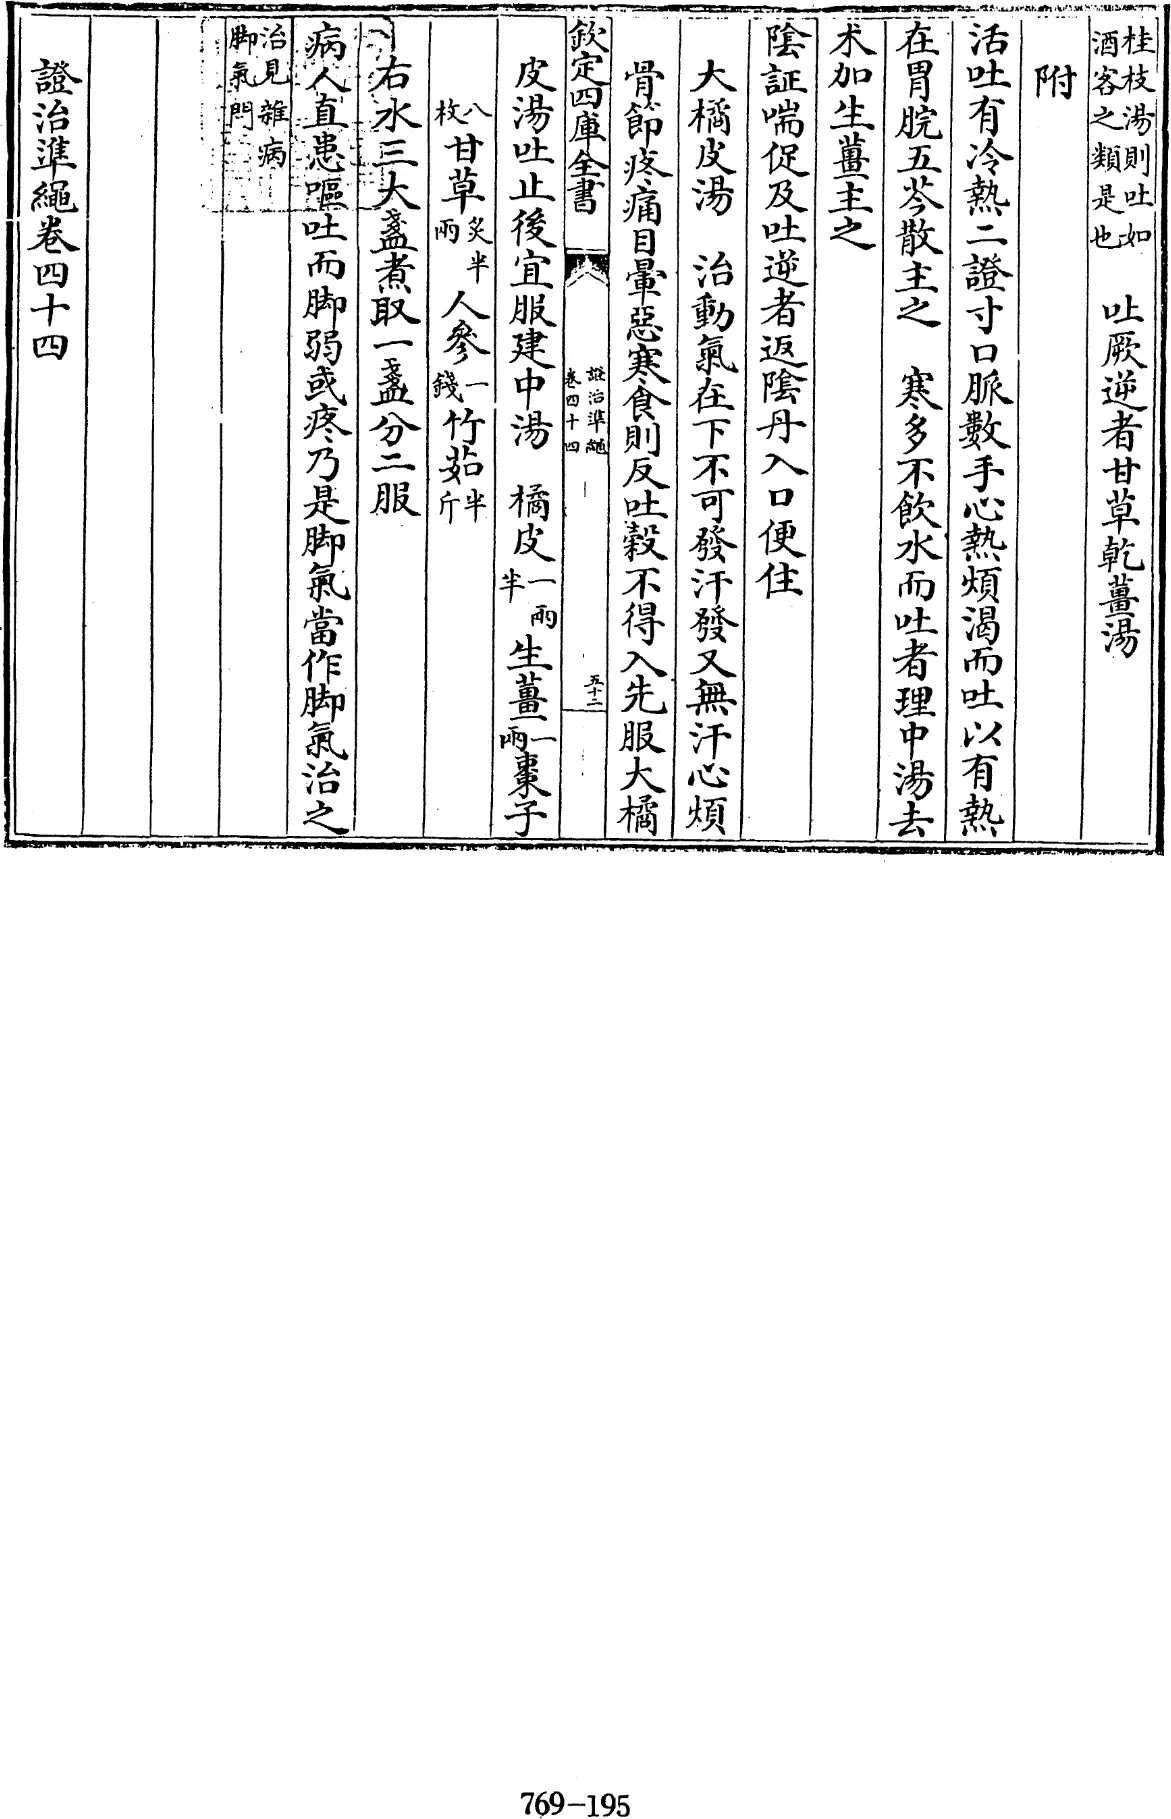 桂枝湯則吐如酒客之類是也　吐厥逆者甘草乾薑湯
附
活吐有冷熱二證寸口脈數手心熱煩渴而吐以有熱
在胃脘五苓散主之　寒多不飲水而吐者理中湯去
朮加生薑主之
陰証喘促及吐逆者返陰丹入口便住
大橘皮湯　治動氣在下不可發汗發又無汗心煩
骨節疼痛目暈惡寒食則反吐穀不得入先服大橘
欽定四庫全書
證治準繩
卷四十四
五十二
皮湯吐止後宜服建中湯　橘皮一兩半生薑一兩棗子
八枚甘草炙半兩人參一錢竹茹半斤
右水三大盞煮取一盞分二服
病人直患嘔吐而脚弱或疼乃是脚氣當作脚氣治之
治見雜病脚氣門
證治準繩卷四十四
769-195